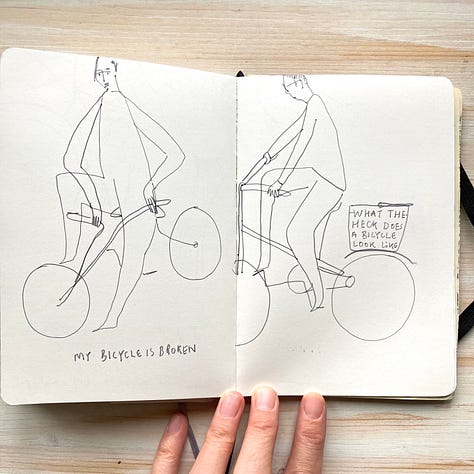 MY BICYCLE IS BROKEN
WHAT THE
HECK DOES
A BICYCLE
LOOK LIKE